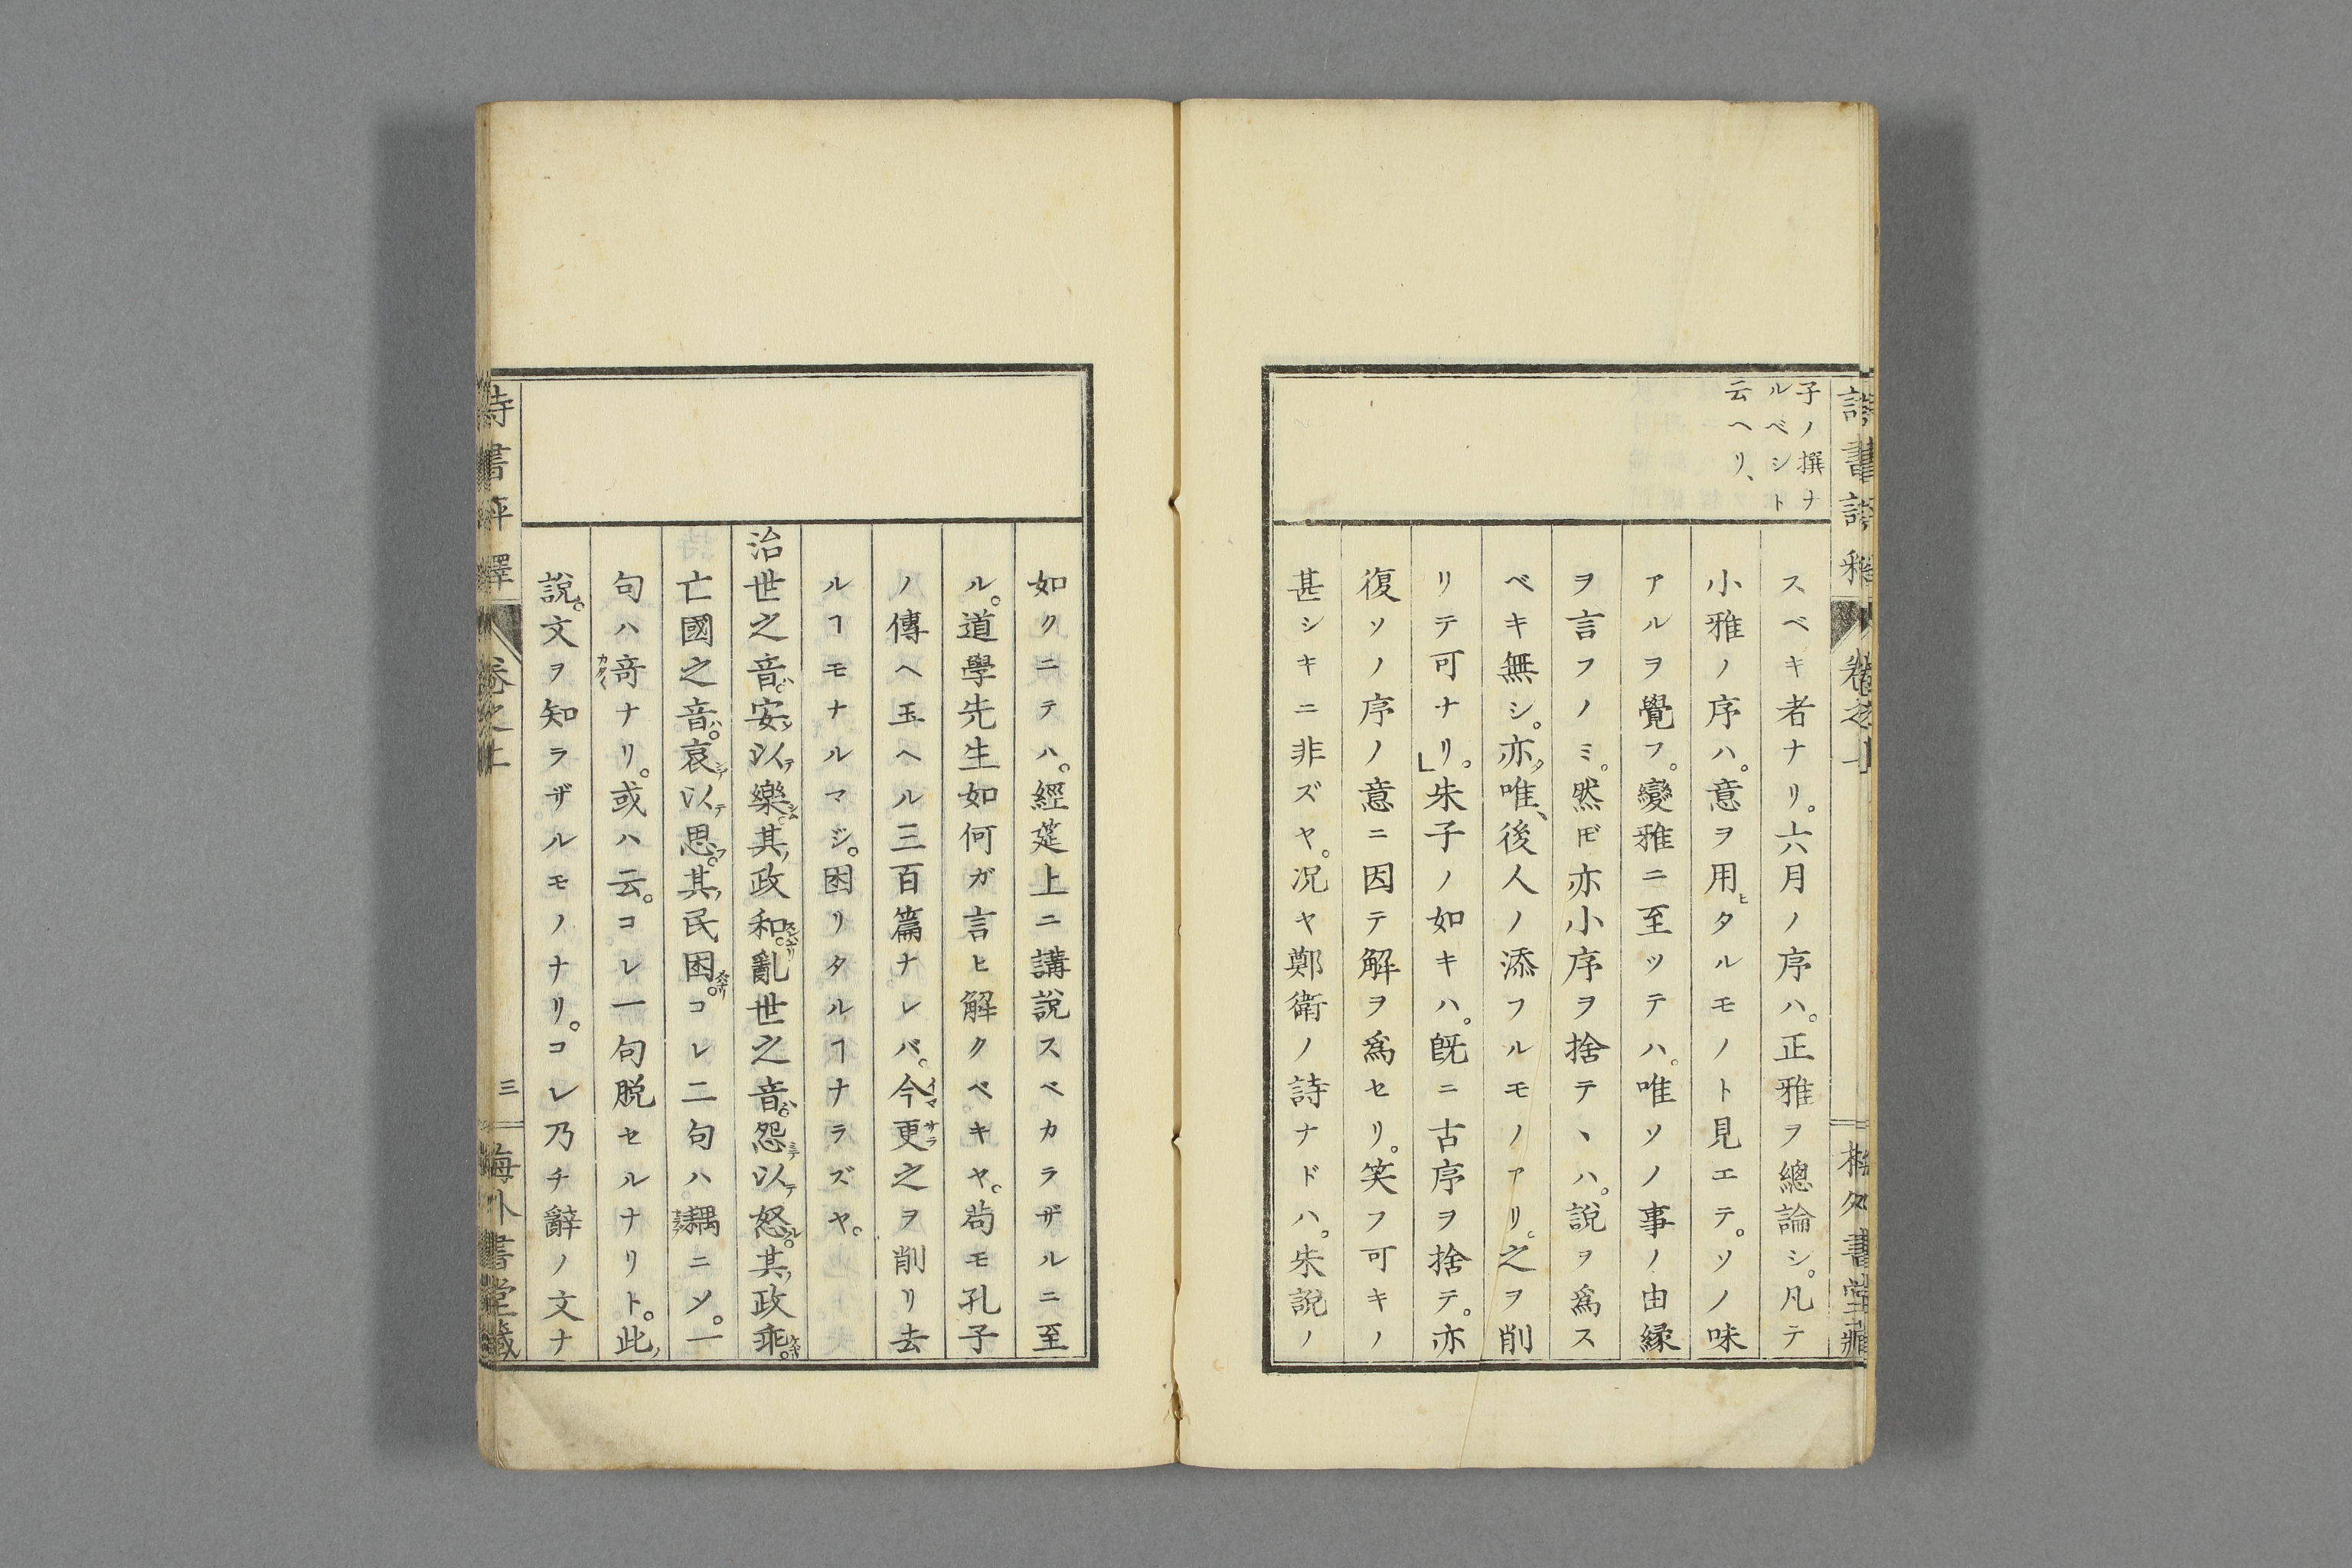 子ノ撰ナ
ルベシト
云ヘリ、
スベキ者ナリ。六月ノ序ハ。正雅ヲ總論シ。凡テ
小雅ノ序ハ。意ヲ用ヒタルモノト見エテ。ソノ味
アルヲ覺フ。變雅ニ至ツテハ。唯ソノ事ノ由緣
ヲ言フノミ。然𪜈亦小序ヲ捨テヽハ。說ヲ爲ス
ベキ無シ。亦タ唯、後人ノ添フルモノアリ。之ヲ削
リテ可ナリ。」朱子ノ如キハ。旣ニ古序ヲ捨テ。亦
復ソノ序ノ意ニ因テ解ヲ爲セリ。笑フ可キノ
甚シキニ非ズヤ。況ヤ鄭衛ノ詩ナドハ。朱說ノ
如クニテハ。經筵上ニ講說スベカラザルニ至
ル。道學先生如何ガ言ヒ解クベキヤ。苟モ孔子
ノ傳ヘ玉ヘル三百篇ナレバ。今更之ヲ削リ去
ルヿモナルマジ。困リタルヿナラズヤ。
治世之音ハ。安ンジ以テ樂シム。其ノ政和ヤハラゲバナリ。亂世之音ハ。怨ミテ以テ怒ル。其ノ政乖ケバナリ。
亡國之音ハ。哀シテ以テ思フ。其ノ民困メバナリ。コレ二句ハ耦ニソ。一
句ハ奇ナリ。或ハ云。コレ一句脫セルナリト。此ノ
說。文ヲ知ラザルモノナリ。コレ乃チ辭ノ文ナ
詩書評釋
卷之上
三
梅外書堂藏